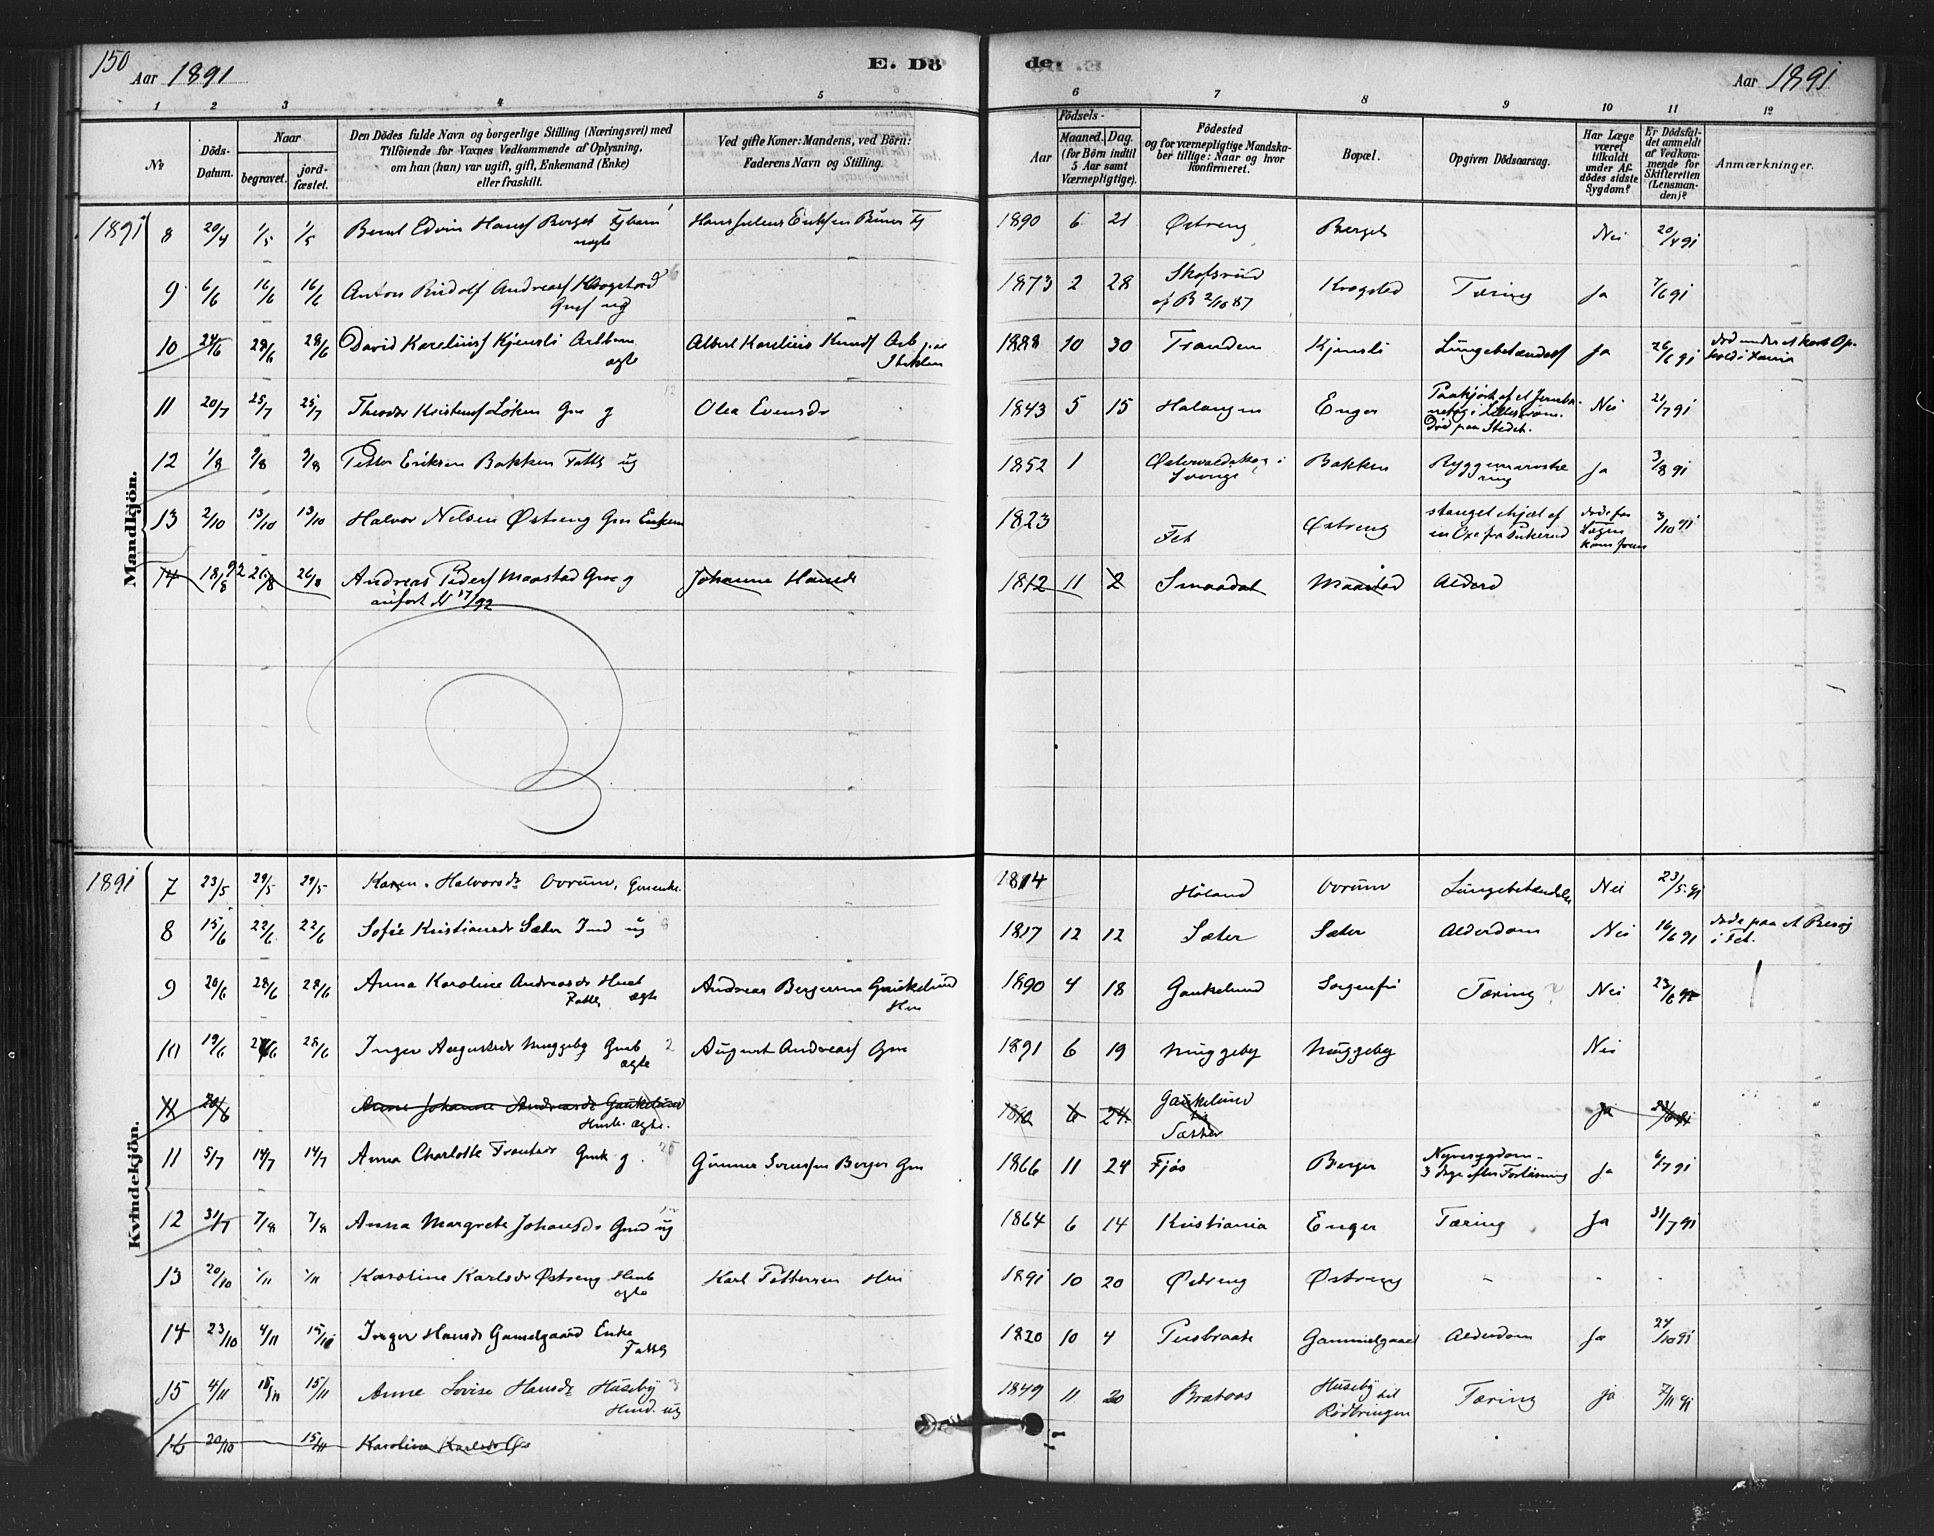 150
Aar 1891
E. Dö
de.
Aar 1891
1 2 3 4 5 6 7 8 9 10 11 12
No
Döds-Datum.
Naar
begravet.
jord-fæstet.
Den Dödes fulde Navn og borgerlige Stilling (Næringsvei) med
Tilföiende for Voxnes Vedkommende af Oplysning,
om han (hun) var ugift, gift, Enkemand (Enke)
eller fraskilt.
Ved gifte Koner: Mandens, ved Börn:
Faderens Navn og Stilling.
Födsels-
Aar
Maaned.
Dag.
(for Börn indtil
5 Aar samt
Værnepligtige).
Födested
og for værnepligtige Mandska-
ber tillige: Naar og hvor
konfirmeret.
Bopæl.
Opgiven Dödsaarsag.
Har Læge
været
tilkaldt
under Af-
dödes sidste
Sygdom?
Er Dödsfal-
det anmeldt
af Vedkom-
mende for
Skifteretten
(Lensman-
den)?
Anmærkninger.
Mandkjön.
1891 8 20/4 1/5 1/5 Bernt Edvin Hansf Berget 1890 6 21 Østreng Berget Nei 20/4 91
ægte
9 6/6 16/6 16/6 Anton Rudolf Andreasf Krogstad 1873 2 28 Skofsrud Krogsted Tæring Ja 7/6 91
ug 2/10 87
10 24/6 28/6 28/6 David Kareliusf Kjensli Albert Karelius 1888 10 30 Tranden Kjensli Lungebetændelse Ja 26/6 91
ægte
11 20/7 25/7 25/7 Theodor Kristensf Løken Gm g Olea Evensdr 1843 5 15 Halangen Enger Paakjørt af et Jernba-
netog i Lillestrøm. Nei 21/7 91
Død paa Stedet.
12 1/8 9/8 9/8 Petter Eriksen Bakken Fattig ug 1852 1 i Bakken Ja 3/8 91
Sverige
13 2/10 13/10 13/10 Halvor Nelsen Østreng Gm Enkem 1823 Fet Østreng stanget ihjel af
en Oxe fra døde før
Lægen
kom frem 3/10 91
14 18/8 92 26/8 26/8 Andreas Pedersf Maastad g Johanne Hansdr 1812 11 2 Smaadal Maastad Alderd
anført N 17/92
Kvindekjön.
1891 7 23/5 29/5 29/5 Karen Halvorsdr Ovrum, Gmenke. 1814 Høland Ovrum Lungebetændelse Nei 23/5 91
8 15/6 22/6 22/6 Sofie Kristiansdr Sæter Ind ug 1817 12 12 Sæter Sæter Alderdom Nei 16/6 91 døde paa et Besøg
i Fet.
9 20/6 28/6 28/6 Anna Karoline Andreasdr Andreas Bergersen Gaukelund 1890 4 18 Gaukelund Sorgenfri Tæring? Nei 23/6 91
Fattig ægte Hm
10 19/6 28/6 28/6 Inger Augustsdr Muggeby Gmb 2 August Andreasf Gm 1891 6 19 Muggeby Muggeby Nei
ægte
11 20/6 Anne Johanne Andreasdr Gaukelund 1890 6 24 Gaukelund Ja
ægte.
Sæther
11 5/7 14/7 14/7 Anna Charlotte Frantsdr Gmk g. 25 Gunner Sorensen Berger Gm 1866 11 24 Fjøs Berger Nyresygdom -
3 Dage efter Forløsning Ja 6/7 91
12 31/7 7/8 7/8 Anna Margrete Johansdr Gmd ug 1864 6 14 Kristiania Enger Tæring Ja 31/7 91
13 20/10 1/11 1/11 Karoline Karlsdr Østreng Hmb Karl Pettersen Hm 1891 10 20 Østreng Østreng - - -
ægte
14 23/10 4/11 15/11 Inger Hansdr Gamelgaard Enke 1820 10 4 Gammelgaard Alderdom Ja 24/10 91
Fattig
15 4/11 15/11 15/11 Anne Lovise Hansdr Huseby 3 1849 11 20 Brataas Huseby til
Rødbringen Tæring ja 7/11 91
Hmd. ug
16 20/10 15/11 Karoline Karlsdr Øs